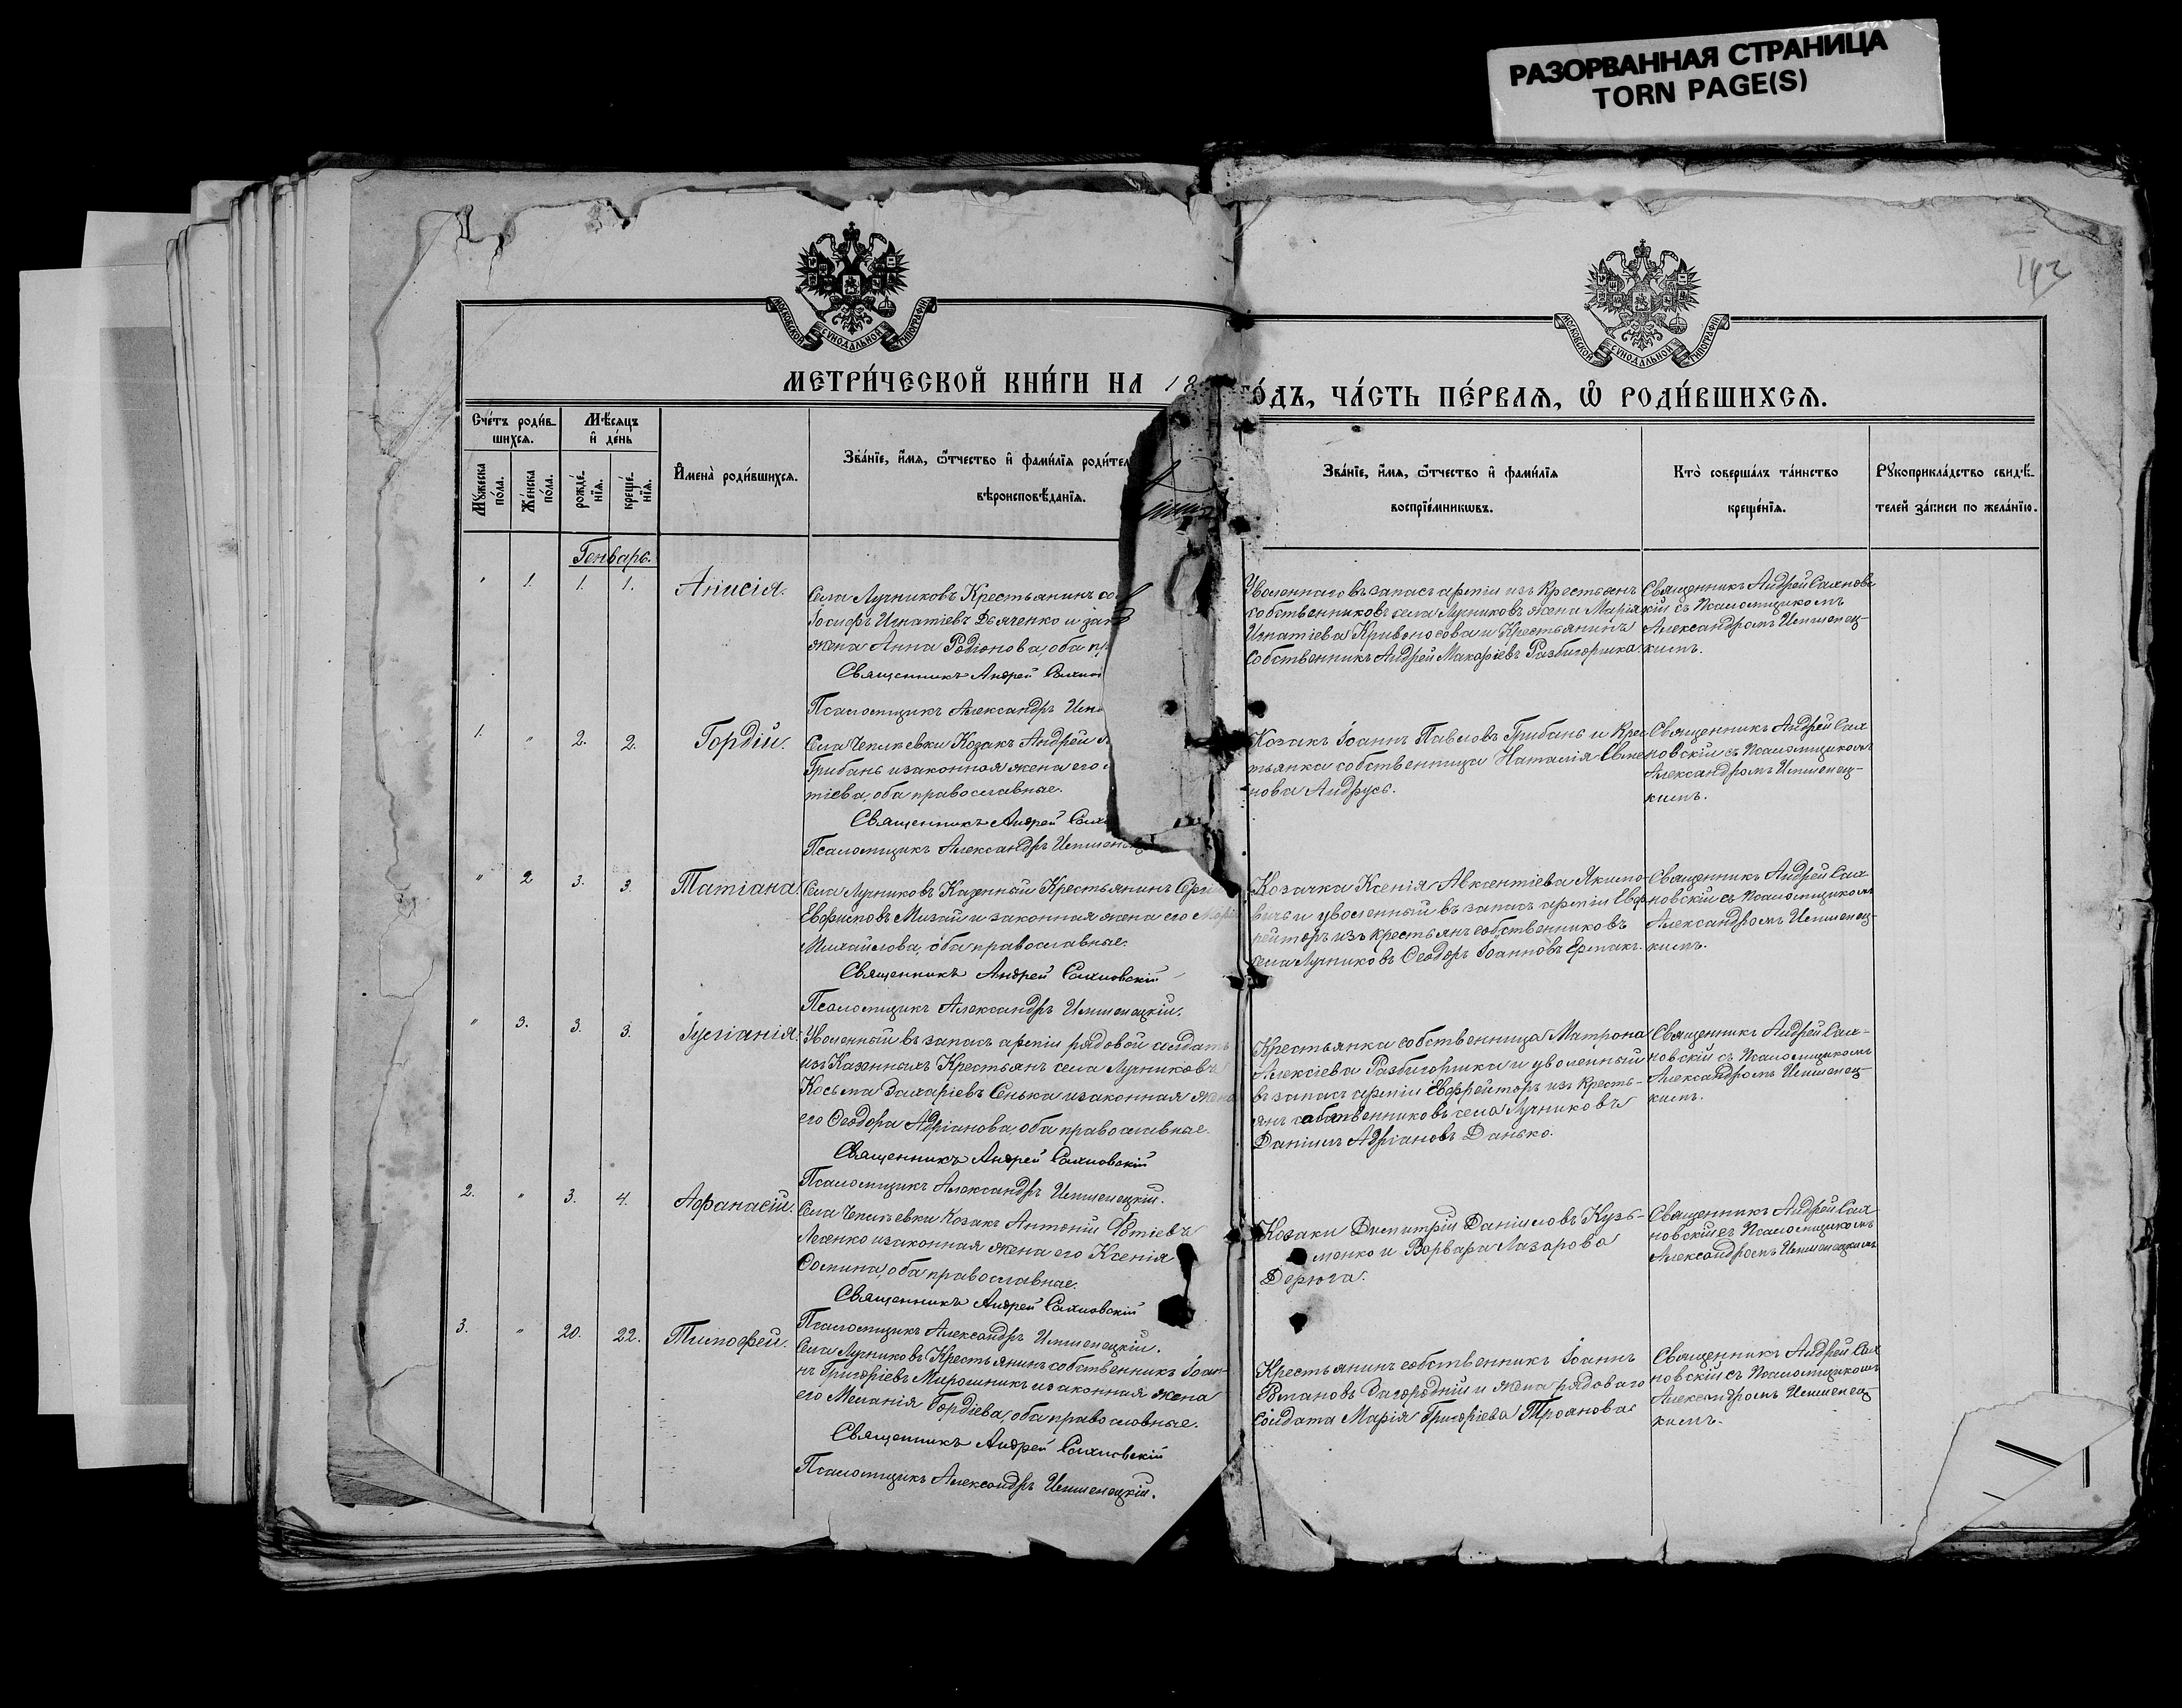 РАЗОРВАННАЯ СТРАНИЦА
TORN PAGE(S)
142
МОСКОВСКОЙ СѴНОДАЛЬНОЙ ТИПОГРАФІИ
МОСКОВСКОЙ СѴНОДАЛЬНОЙ ТИПОГРАФІИ
МЕТРИ́ЧЕСКОЙ КНИ́ГИ НА 18
ГО́ДЪ, ЧА́СТЬ ПЕ́РВАѦ, Ѿ РОДИ́ВШИХСѦ.
Сче́тъ роди́в-
шихсѧ.
Мѣ́сѧцъ
и҆ де́нь
Мꙋ́жеска
по́ла.
Же́нска
по́ла.
рожде́-
нїѧ.
креще́-
нїѧ.
И҆мена̀ роди́вшихсѧ.
Зва́нїе, и҆́мѧ, ѻ҆́тчество и҆ фами́лїѧ роди́тел
вѣроисповѣ́данїѧ.
Зва́нїе, и҆́мѧ, ѻ҆́тчество и҆ фами́лїѧ
воспрїе́мникѡвъ.
Кто̀ соверша́лъ та́инство
креще́нїѧ.
Рꙋкоприкла́дство свидѣ́-
телей за́писи по жела́нїю.
Генварь.
" 1. 1. 1. Анисія.
Села Лучниковъ Крестьянинъ со
Іосифъ Игнатіевъ Дьяченко и зак
жена Анна Родіонова, оба пр
Священникъ Андрей Сахнов
Псаломщикъ Александръ
Уволеннаго въ запасъ арміи изъ Крестьянъ
собственниковъ села Лучниковъ жена Марія
Игнатіева Кривоносова и Крестьянинъ
Собственникъ Андрей Макаріевъ Разбигоршка.
Священникъ Андрей Сахновс
кій съ Псаломщикомъ
Александромъ Ипшенец-
кимъ.
1. " 2. 2. Гордій.
Села Чепилевки Козакъ Андрей
Грибань и законная жена его
тіева, оба православные.
Священникъ Андрей Сахн
Псаломщикъ Александръ Ипшенец
Козакъ Іоаннъ Павловъ Грибань и Крес
тьянка собственница Наталія Симе
нова Андрусь.
Священникъ Андрей Сах
новскій съ Псаломщикомъ
Александромъ Ипшенец-
кимъ.
" 2 3. 3. Татіана.
Села Лучниковъ Казенный Крестьянинъ
Евфимовъ Мизай и законная жена его
Михайлова, оба православные.
Священникъ Андрей Сахновскій
Псаломщикъ Александръ Ипшенецкій.
Козачка Ксенія Авксентіева Якимо-
вичъ и уволенный въ запасъ арміи Ефф
рейторъ изъ крестьянъ собственниковъ
села Лучниковъ Ѳеодоръ Іоанновъ Ермакъ.
Священникъ Андрей Сах
новскій съ Псаломщикомъ
Александромъ Ипшенец-
кимъ.
" 3. 3. 3. Іуліанія.
Уволенный въ запасъ арміи рядовой солдатъ
изъ Казенныхъ Крестьянъ села Лучниковъ
Косьма Захаріевъ Сенька и законная жена
его Ѳеодора Адріанова, оба православные.
Священникъ Андрей Сахновскій
Псаломщикъ Александръ Ипшенецкій.
Крестьянка собственница Матрона
Алексіева Разбигоршка и уволенный
въ запасъ арміи Еффрейторъ изъ кресть-
янъ собственниковъ села Лучниковъ
Даніилъ Адріановъ Данько.
Священникъ Андрей Сах-
новскій съ Псаломщикомъ
Александромъ Ипшенец-
кимъ.
2. " 3. 4. Афанасій.
Села Чепилевки Козакъ Антоній Фотіевъ
Лесенко и законная жена его Ксенія
Ѳомина, оба православные.
Священникъ Андрей Сахновскій
Псаломщикъ Александръ Ипшенецкій.
Козаки Димитрій Даніиловъ Кузь-
менко и Варвара Лазарова
Дерюга.
Священникъ Андрей Сах
новскій съ Псаломщикомъ
Александромъ Ипшенецкимъ
3. " 20. 22. Тимофей.
Села Лучниковъ Крестьянинъ собственникъ Іоан-
нъ Григоріевъ Мирошникъ и законная жена
его Меланія Гордіева, оба православные.
Священникъ Андрей Сахновскій
Псаломщикъ Александръ Ипшенецкій.
Крестьянинъ собственникъ Іоаннъ
Романовъ Загородній и жена рядоваго
Солдата Марія Григоріева Троянова
Священникъ Андрей Сах
новскій съ Псаломщикомъ
Александромъ Ипшенец-
кимъ.